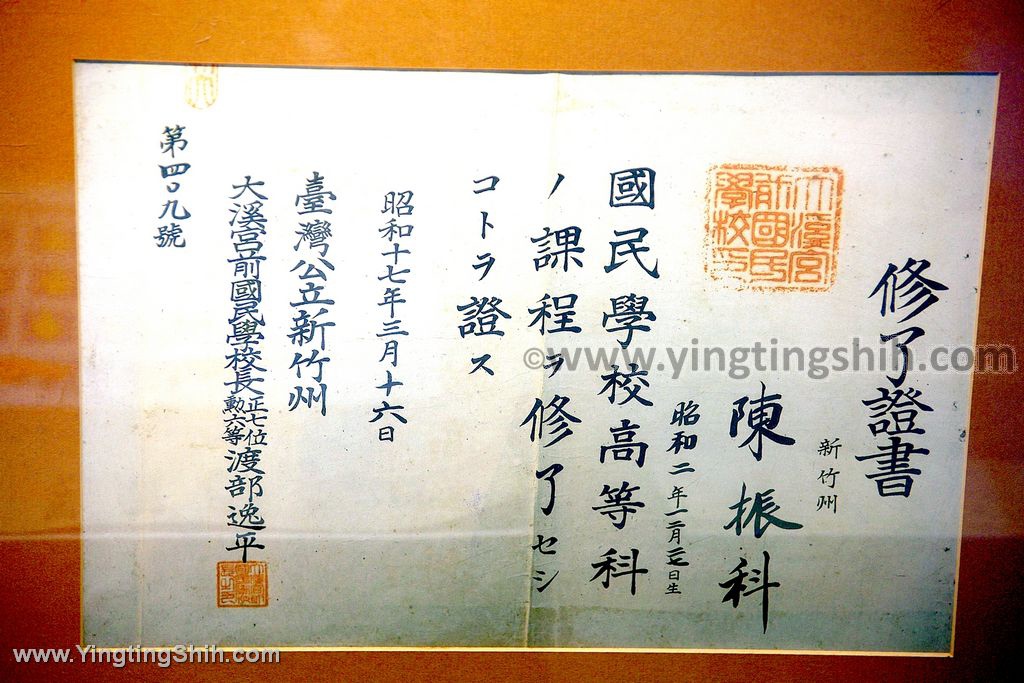 修了證書
新竹州
陳振科
昭和二年
月
日生
大溪宮
前國民
學校印
國民學校高等科
ノ課程ヲ修了セシ
コトヲ證ス
昭和十七年三月十六日
臺灣公立新竹州
大溪宮前國民學校長正七位勳六等渡部逸平
第四〇九號
©www.yingtingshih.com
www.YingtingShih.com